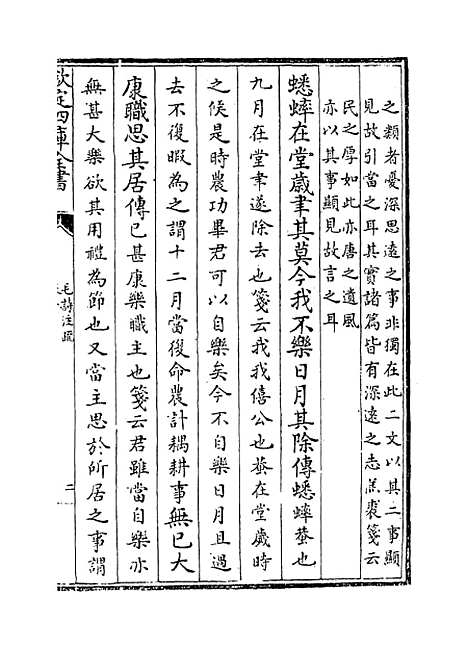 之類者憂深思遠之事非獨在此二文以其二事顯
見故引當之耳其實諸篇皆有深遠之志羔裘箋云
民之厚如此亦唐之遺風
亦以其事顯見故言之耳
蟋蟀在堂歲聿其莫今我不樂日月其除傳蟋蟀蛬也
九月在堂聿遂除去也箋云我我僖公也蛬在堂歲時
之候是時農功畢君可以自樂矣今不自樂日月且過
去不復暇為之謂十二月當復命農計耦耕事無已大
康職思其居傳已甚康樂職主也箋云君雖當自樂亦
無甚大樂欲其用禮為節也又當主思於所居之事謂
欽定四庫全書
毛詩注疏
二